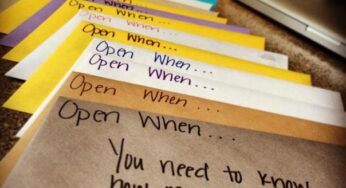 Open When...
Open When...
Open When...
Open When...
Open When...
Open When...
Open When...
You need to know
how